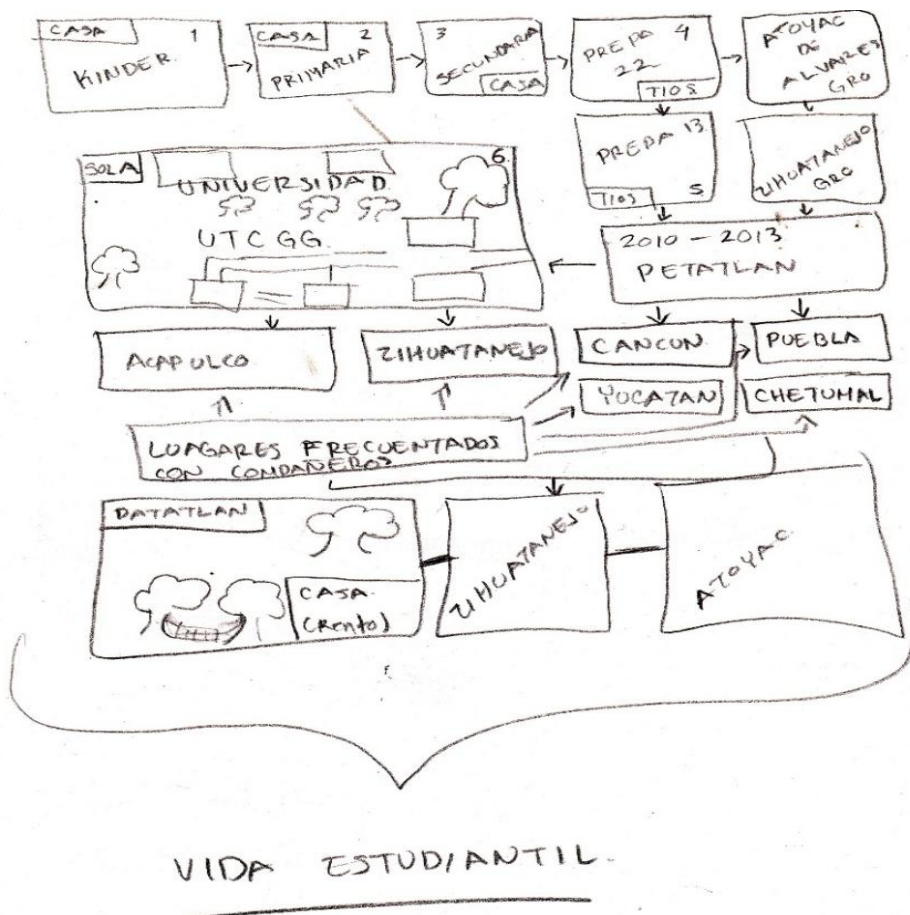 CASA 1
KINDER.
CASA 2
PRIMARIA
3
SECUNDARA
CASA
PREPA 4
22
TIOS
ATOYAC
DE
ALVARES
GRO
PREPA 13
TIOS 5
ZIHUATANEJO
GRO
SOLA 6
UNIVERSIDAD.
UTCGG.
2010-2013
PETATLAN
ACAPULCO
ZIHUATANEJO
CANCUN
PUEBLA
YUCATAN
CHETUMAL
LUAGARES FRECUENTADOS
CON COMPAÑEROS
DATATLAN
CASA.
(Rento)
ZIHUATANEJO
ATOYAC.
VIDA ESTUDIANTIL.